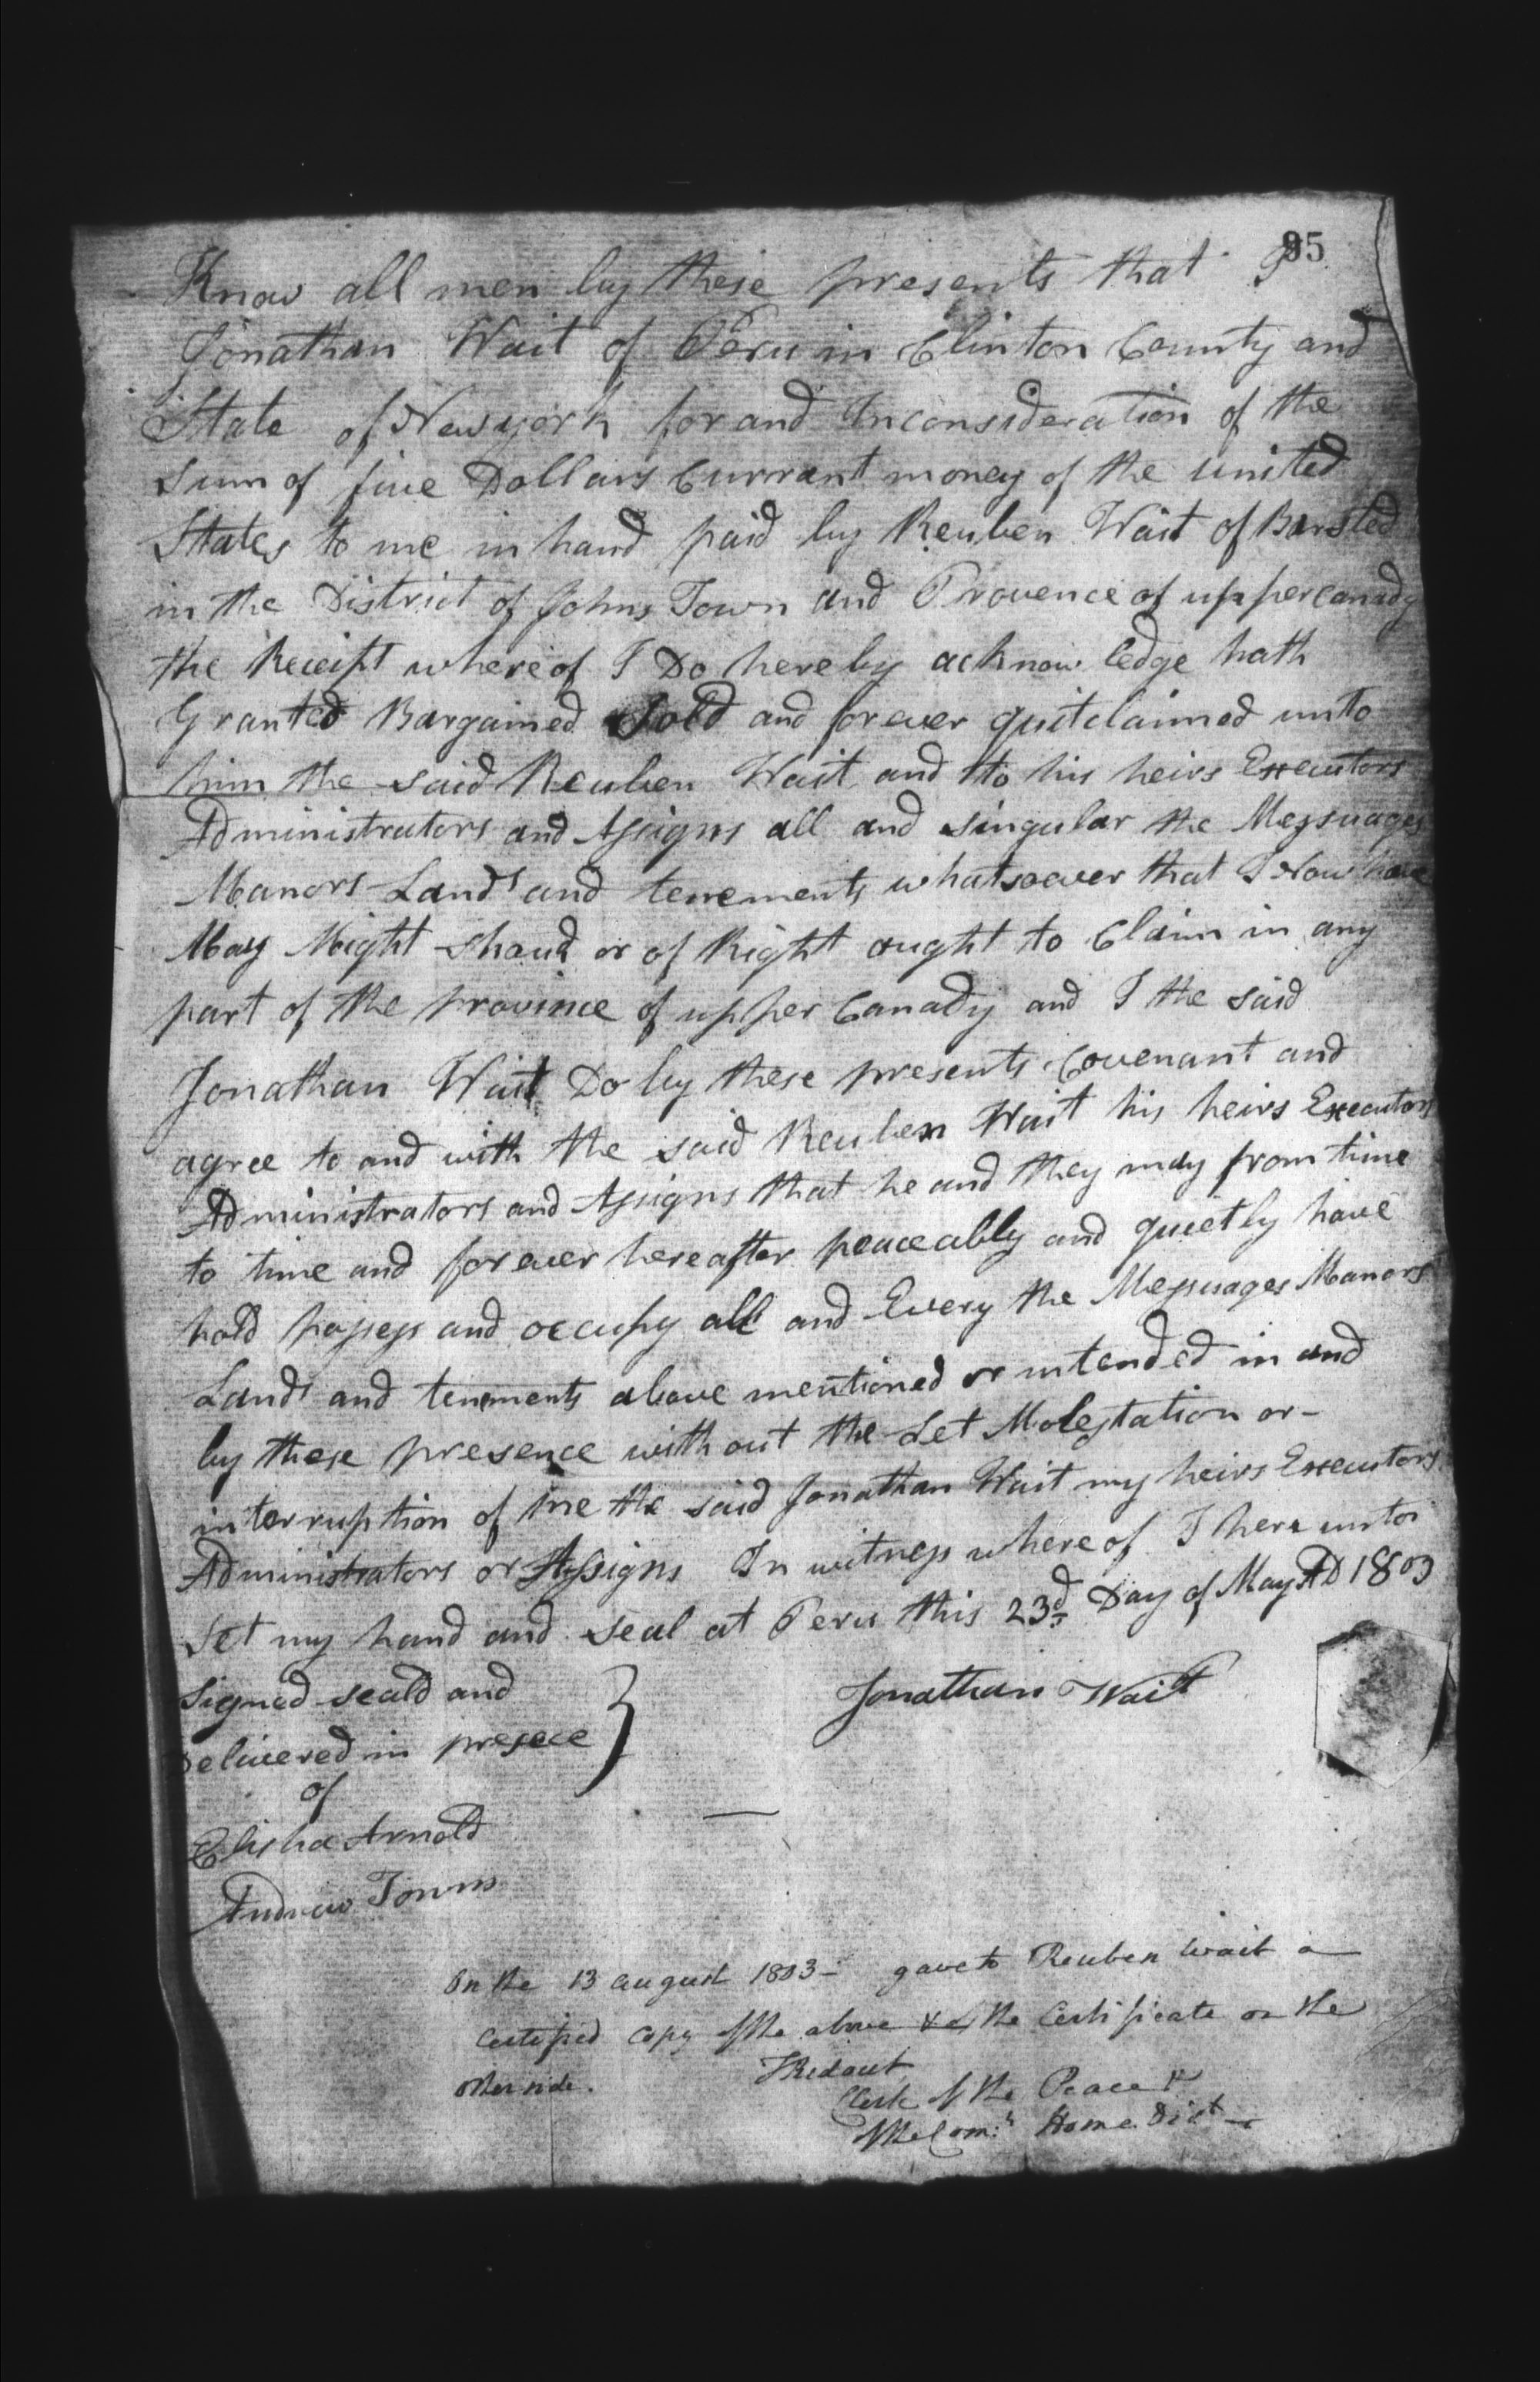 95
Know all men by these presents that I
Jonathan Wait of Peru in Clinton County and
State of Newyork for and Inconsideration of the
Sum of five Dollars Currant money of the united
States to me in hand paid by Reuben Wait of Barsted
in the District of Johns Town and Provence of uppercanady
the Receipt whereof I Do hereby acknow ledge hath
Granted Bargained Sold and forever quitclaimed unto
him the said Reuben Wait and to his heirs Executors
Administrators and Assigns all and singular the Messuages
Manors Lands and tenements whatsoever that I Now have
May Might Shoud or of Right ought to Claim in any
part of the province of upper Canady and I the said
Jonathan Wait Do by these presents Covenant and
agree to and with the said Reuben Wait his heirs Executors
Administrators and Assigns that he and they may from time
to time and for ever hereafter peaceably and quietly have
hold possess and occupy all and Every the Messuages Manors
Lands and tenements above mentioned or intended in and
by these presence with out the Let Molestation or -
interruption of me the said Jonathan Wait my heirs Executors
Administrators or Assigns In witness where of I here unto
Set my hand and seal at Peru this 23d Day of May AD 1803
Signed seald and
Delivered in presece
of
Jonathan Wait
Elisha Arnold
Andrew Towns
On the 13 august 1803 - gave to Reuben Wait a
Certified copy of the above & of the Certificate on the
other side.
TRidout
Clerk of the Peace &
of the Comrs Home Dist